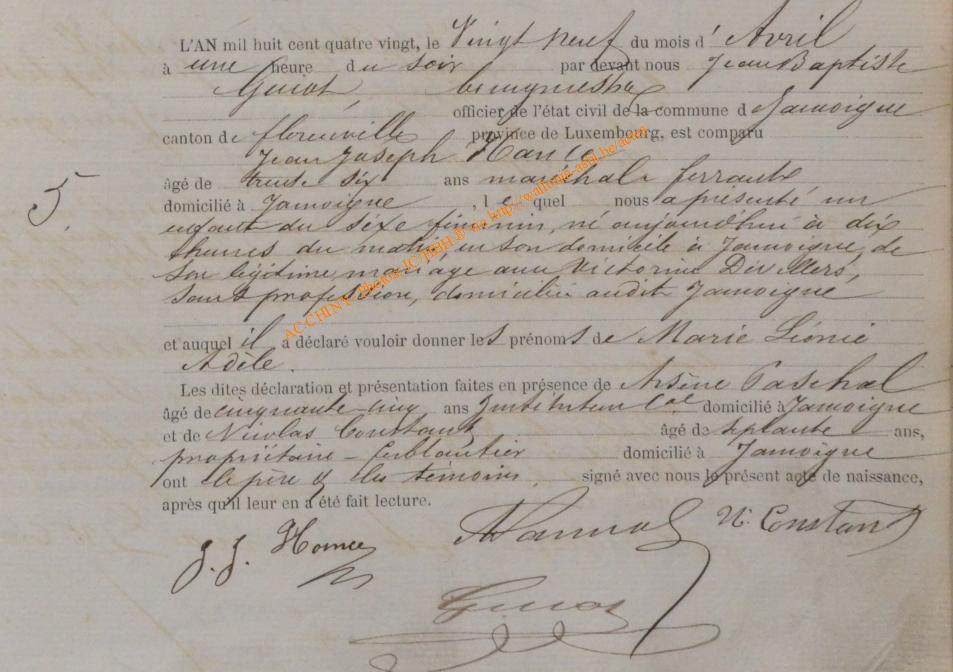 L'AN mil huit cent quatre vingt, le Vingt neuf du mois d' Avril
à une heure du soir par devant nous Jean Baptiste
Guiot, bourgmestre
officier de l'état civil de la commune d Jamoigne
canton de florenville province de Luxembourg, est comparu
Jean Joseph Hance
âgé de trente six ans maréchal ferrant
5. domicilié à Jamoigne, lequel nous a présenté un
enfant du sexe féminin, né aujourd'hui à dix
heures du matin en son domicile à Jamoigne, de
son légitime mariage avec Victorine
sans profession, domiciliée audit Jamoigne
et auquel il a déclaré vouloir donner les prénoms de Marie Léonie
Adèle.
Les dites déclaration et présentation faites en présence de Arsène Paschal
âgé de cinquante cinq ans Instituteur Cal domicilié à Jamoigne
et de Nicolas Constant âgé de septante ans,
propriétaire - ferblantier domicilié à Jamoigne
ont le père & les témoins signé avec nous le présent acte de naissance,
après qu'il leur en a été fait lecture.
J. J. Hance N. Constant
Guiot
AC CHINY - Photos JC/HBH © via http://wallonia-asbl.be/actes